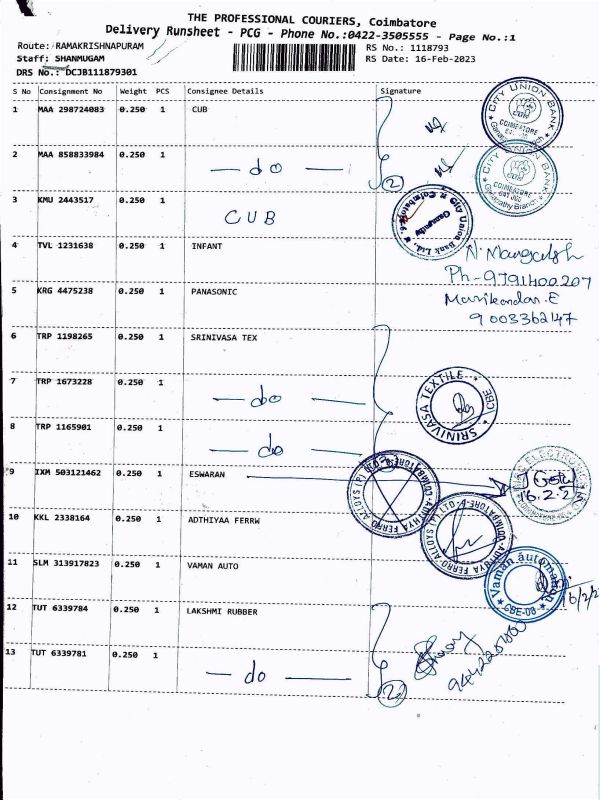 THE PROFESSIONAL COURIERS, Coimbatore
Delivery Runsheet - PCG - Phone No.:0422-3505555 - Page No.:1
Route: RAMAKRISHNAPURAM RS No.: 1118793
Staff: SHANMUGAM RS Date: 16-Feb-2023
DRS No.: DCJB111879301
S No Consignment No Weight PCS Consignee Details Signature
1 MAA 298724083 0.250 1 CUB
CITY UNION BANK
COIMBATORE
2 MAA 858833984 0.250 1 — do — 2
CITY UNION BANK
COIMBATORE
641 006
Ganapathy Branch
3 KMU 2443517 0.250 1 CUB
City Union Bank Ltd.,
Ganapathy
Coimbatore-6.
4 TVL 1231638 0.250 1 INFANT
Ph - 9791400207
5 KRG 4475238 0.250 1 PANASONIC
Manikandan.E
9003362147
6 TRP 1198265 0.250 1 SRINIVASA TEX
7 TRP 1673228 0.250 1 — do —
SRINIVASA TEXTILE
CBE
8 TRP 1165901 0.250 1 — do —
9 IXM 503121462 0.250 1 ESWARAN
16.2.2
10 KKL 2338164 0.250 1 ADTHIYAA FERRW
ADHIYA FERRO ALLOYS (P) LTD
COIMBATORE-6
11 SLM 313917823 0.250 1 VAMAN AUTO
Vaman automation
CBE-06
16/2/2
12 TUT 6339784 0.250 1 LAKSHMI RUBBER
13 TUT 6339781 0.250 1 — do — 2